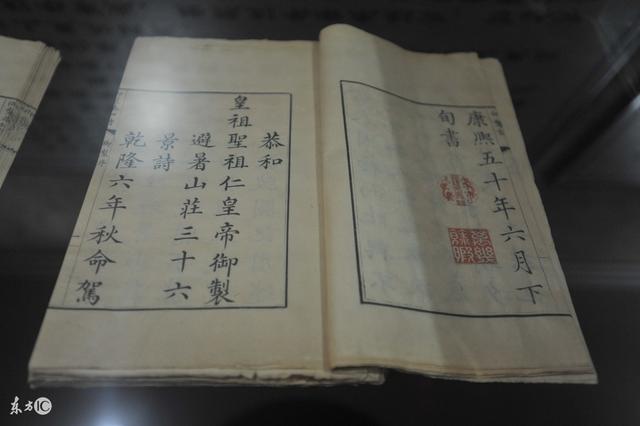 康熙五十年六月下
旬書
恭和
皇祖聖祖仁皇帝御製
避暑山莊三十六
景詩
乾隆六年秋命駕
东方IC